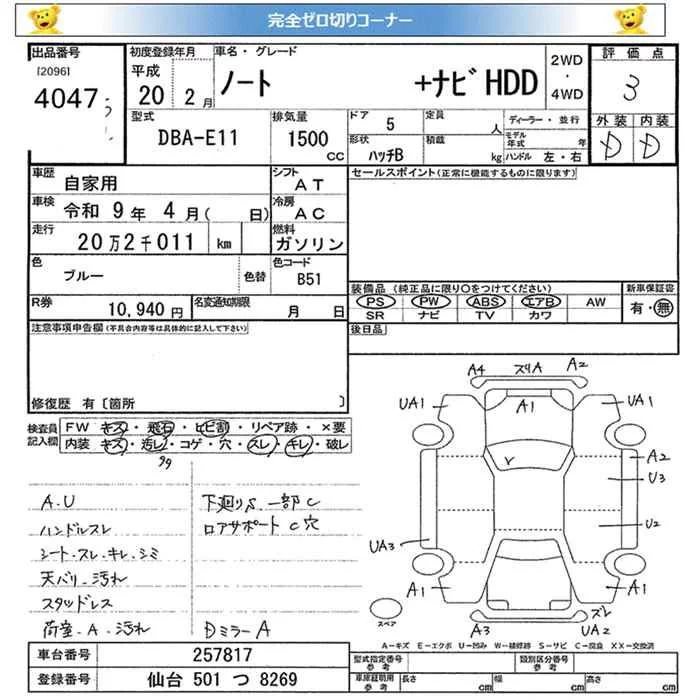 完全ゼロ切りコーナー
出品番号
[2096]
4047
初度登録年月
平成
20 2月
車名・グレード
ノート +ナビHDD
2WD
・
4WD
評価点
3
外装 内装
D D
型式
DBA-E11
排気量
1500
CC
ドア
5
定員
人
形状
ハッチB
積載
kg
ディーラー・並行
モデル年式 年
ハンドル 左・右
車歴
自家用
シフト
AT
車検
令和 9年 4月( 日)
冷房
AC
走行
20万2千011 km
燃料
ガソリン
色
ブルー
色替
色コード
B51
R券
10,940円
名変通知期限
月 日
セールスポイント(正常に機能するものに限ります)
装備品 (純正品に限り○をつけてください)
PS PW ABS エアB AW
SR ナビ TV カワ
新車保証書
有・無
後日品
注意事項申告欄(不具合内容等は具体的に記入して下さい)
修復歴 有〔箇所 〕
検査員記入欄
FW キズ・飛石・ヒビ割・リペア跡・×要
内装 キズ・汚レ・コゲ・穴・スレ・キレ・破レ
A.U
ハンドルスレ
シート・スレ・キレ・シミ
天バリ・汚れ
スタッドレス
荷室・A・汚れ
下廻りS 一部C
ロアサポートC穴
DミラーA
A4 スリA A2
UA1 A1 UA1
A2
U3
U2
UA3
A1 A1
スペア
A3 ズレ UA2
A-キズ E-エクボ U-凹み W-補修跡 S-サビ C-腐食 XX-交換済
車台番号
257817
登録番号
仙台 501 つ 8269
型式指定番号
参考
類別区分番号
参考
車庫証明用
参考
長さ cm
幅 cm
高さ cm